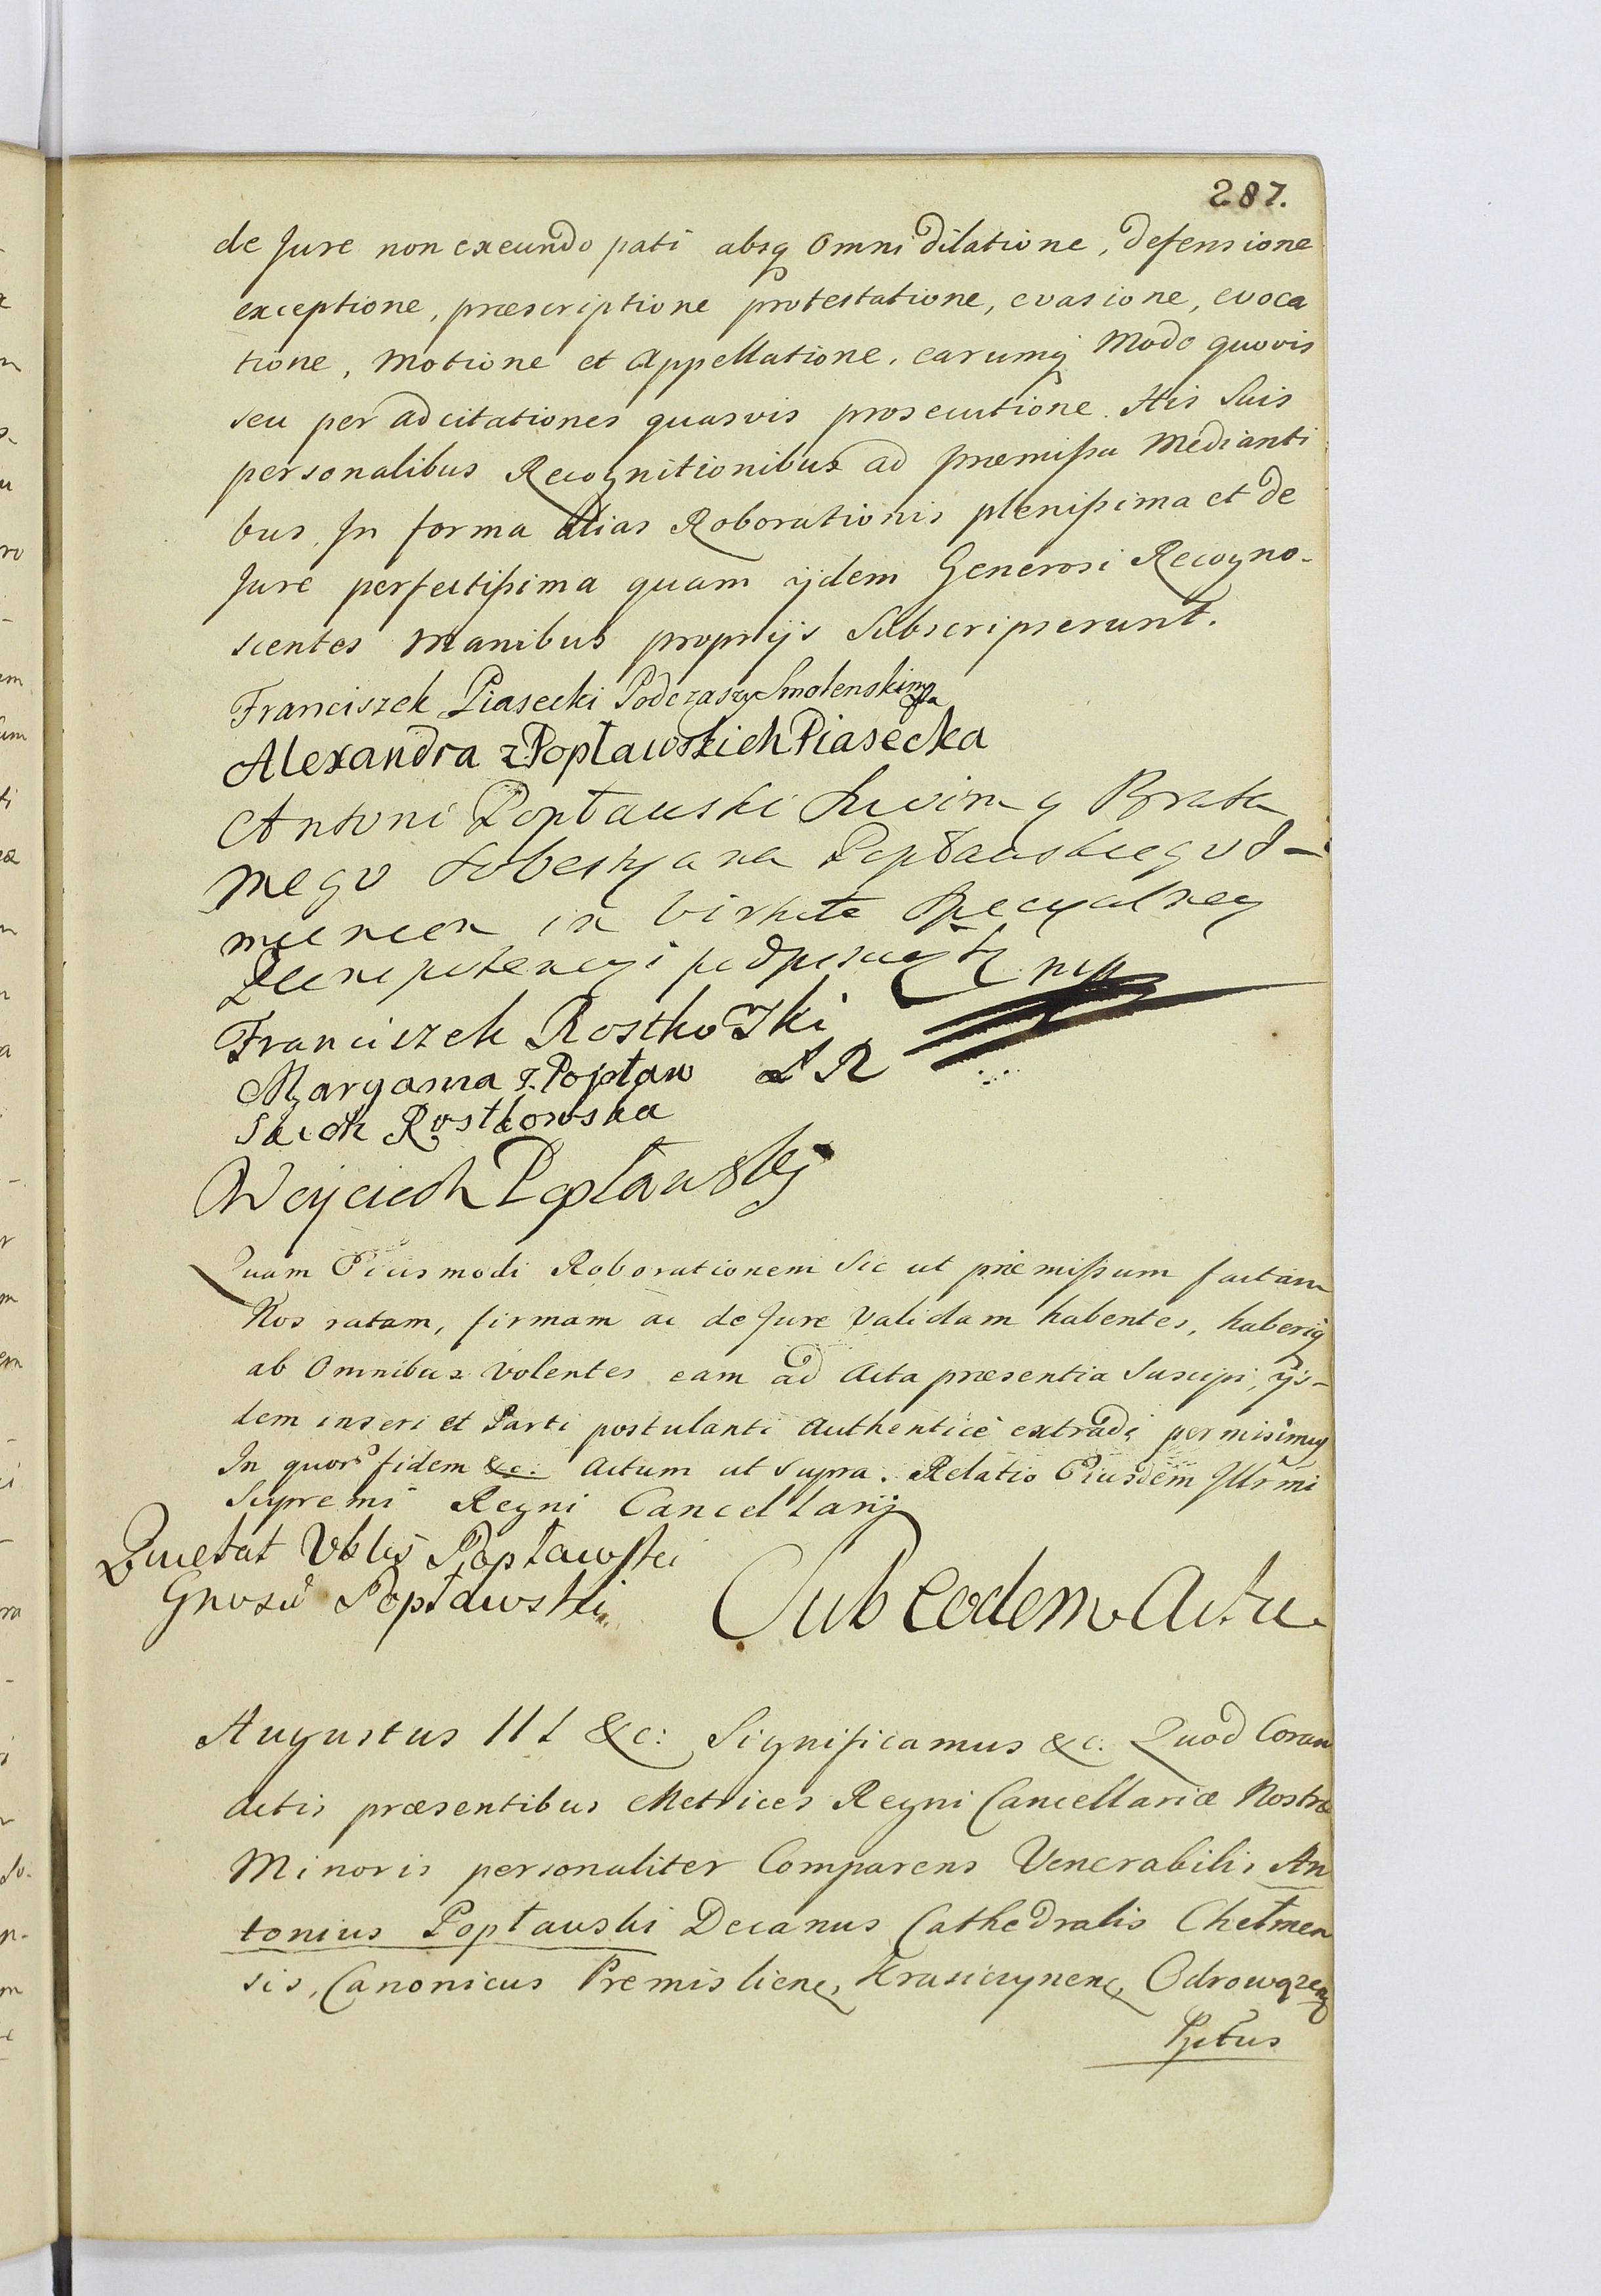 287.
de Jure non exeundo pati absq Omni dilatione, defensione
exceptione, præscriptione protestatione, evasione, evoca
tione, Motione et Appellatione, earumq Modo quovis
seu per adcitationes quasvis prosecutione. His Suis
personalibus Recognitionibus ad præmißa Medianti
bus. In forma alias Roborationis plenißima et de
Jure perfectißima quam ijdem Generosi Recogno-
scentes Manibus proprijs Subscripserunt.
Franciszek Piasecki Podczaszy Smolenski mpa
Alexandra z Popławskich Piasecka
Antoni Popławski Swoim y Brata
mego Sobestyana Popławskiego I-
mieniem in Virtute Specyalney
Plenipotencyi podpisuję się mp
Franciszek Rostkowski
Maryanna z Popław SR
Skich Rostkowska
Woyciech Popławsky
Quam Eiusmodi Roborationem Sic ut præmißum factam
Nos ratam, firmam ac de Jure Validam habentes, haberiq
ab Omnibus Volentes eam ad Acta præsentia Suscipi, ijs-
dem inseri et Parti postulanti Authenticè extradi permisimus
In quor fidem &c: Actum ut Supra. Relatio Eiusdem Illrmi
Supremi Regni Cancellarij
Quietat Vblis Popławski
Gnosū Popławski
Sub Eodem Actu
Augustus III &c: Significamus &c. Quod Coram
Actis præsentibus Metrices Regni Cancellariæ Nostræ
Minoris personaliter Comparens Venerabilis An
tonius Popławski Decanus Cathedralis Chełmen
sis, Canonicus Premislieng, Krasiczyneng, Odrowąz
Pptus